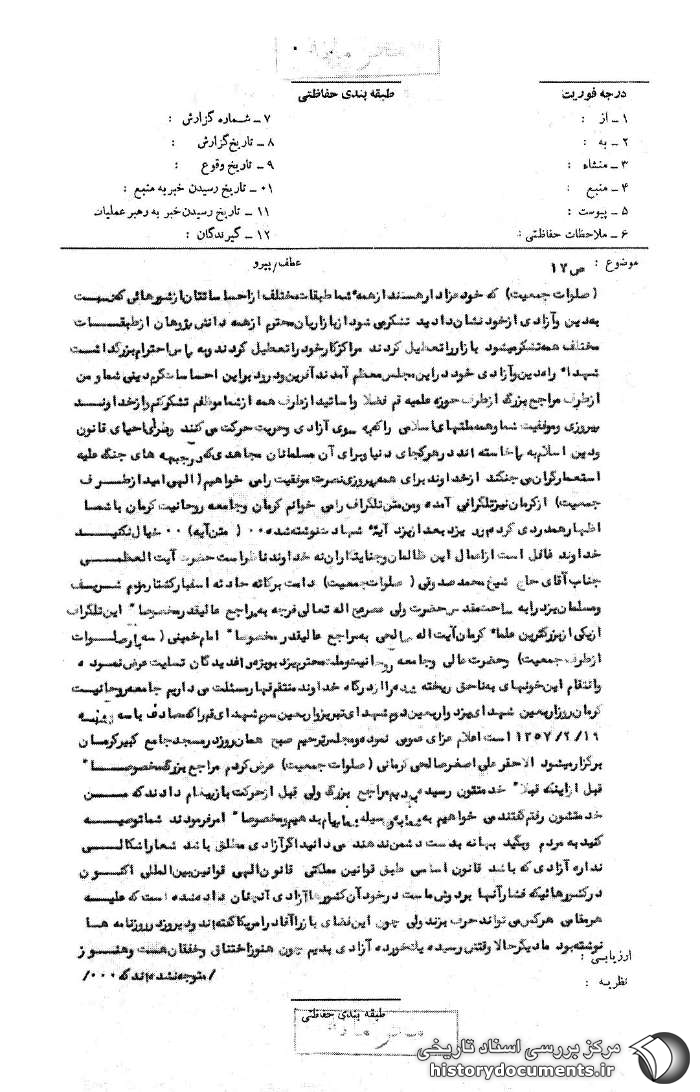 محرمانه
درجه فوریت
طبقه بندی حفاظتی
۱ ـ از :
۷ ـ شماره گزارش :
۲ ـ به :
۸ ـ تاریخ گزارش :
۳ ـ منشاء :
۹ ـ تاریخ وقوع :
۴ ـ منبع :
۰۱ ـ تاریخ رسیدن خبر به منبع :
۵ ـ پیوست :
۱۱ ـ تاریخ رسیدن خبر به رهبر عملیات
۶ ـ ملاحظات حفاظتی :
۱۲ ـ گیرندگان :
موضوع :
عطف/پیرو
ص ۱۷
(صلوات جمعیت) که خود عزادار هستند از همه شما طبقات مختلف از احساساتتان از شورهائی که نسبت
به دین و آزادی از خود نشان دادید تشکر می شود از بازاریان محترم از همه دانش پژوهان از طبقات
مختلف همه تشکر میشود بازار را تعطیل کردند مراکز کار خود را تعطیل کردند و به پاس احترام بزرگداشت
شهداء راه دین و آزادی خود در این مجلس معظم آمدند آفرین و درود بر این احساسات گرم دینی شما و من
از طرف مراجع بزرگ از طرف حوزه علمیه قم فضلا و اساتید از طرف همه از شما موظفم تشکر کنم و از خداوند
پیروزی و موفقیت شما و همه ملتهای اسلامی را که به سوی آزادی و حریت حرکت می کنند و برای احیای قانون
و دین اسلام به پا خاسته اند در هر کجای دنیا و برای آن مسلمانان مجاهدی که در جبهه های جنگ علیه
استعمارگران می جنگند از خداوند برای همه پیروزی نصرت موفقیت را می خواهیم (الهی امید از طرف
جمعیت) از کرمان نیز تلگرافی آمده و من متن تلگراف را می خوانم کرمان و جامعه روحانیت کرمان با شما
اظهار همدردی کردم یزد بعد از یزد آیة شهادت نوشته شده ۰۰ (متن آیه) ۰۰ خیال نکنید
خداوند غافل است از اعمال این ظالمان و جنایتکاران نه خداوند ناظر است حضرت آیت العظمی
جناب آقای حاج شیخ محمد صدوقی (صلوات جمعیت) دامت برکاته حادثه اسفبار کشتار مردم شریف
و مسلمان یزد را به ساحت مقدس حضرت ولی عصر عج اله تعالی فرجه به مراجع عالیقدر مخصوصا" این تلگراف
از یکی از بزرگترین علماء کرمان آیت اله صالحی به مراجع عالیقدر مخصوصا" امام خمینی (سه بار صلوات
از طرف جمعیت) و حضرت عالی و جامعه روحانیت و ملت محترم یزد بویژه داغدیدگان تسلیت عرض نموده
و انتقام این خونهای به ناحق ریخته شده را از درگاه خداوند منتقم قهار مسئلت می داریم جامعه روحانیت
کرمان روز اربعین شهدای یزد و اربعین دوم شهدای تبریز و اربعین سوم شهدای قم را که مصادف با سه شنبه
۱۳۵۷/۲/۱۹ است اعلام عزای عمومی نموده و مجلس ترحیم صبح همان روز در مسجد جامع کبیر کرمان
برگزار میشود الاحقر علی اصغر صالحی کرمانی (صلوات جمعیت) عرض کردم مراجع بزرگ خصوصا"
قبل از اینکه قبلا" خدمتتون رسیده بودیم مراجع بزرگ ولی قبل از حرکت باز پیغام دادند که من
خدمتشون رفتم گفتند می خواهیم به شما به وسیله شما پیام بدهیم و مخصوصا" امر فرمودند شما توصیه
کنید به مردم و بگید بهانه بدست دشمن ندهند می دانید اگر آزادی مطلق باشد شعار اشکالی
نداره آزادی که باشد قانون اساسی طبق قوانین مملکتی قانون الهی قوانین بین المللی اکنون
در کشورهائیکه فشار آنها بر دوش ماست در خود آن کشورها آزادی آنچنان داده شده است که علیه
هر مقامی هر کس می تواند حرف بزند ولی چون این فضای باز را آقا در امریکا گفته اند و دیروز در روزنامه ها
نوشته بود ما دیگر حالا وقتش رسیده یک خورده آزادی بدیم چون هنوز اختناق و خفقان هست و هنوز
/ متوجه نشده اند که ۰۰۰/
ارزیابی :
نظریه :
طبقه بندی حفاظتی
محرمانه
مرکز بررسی اسناد تاریخی
historydocuments.ir